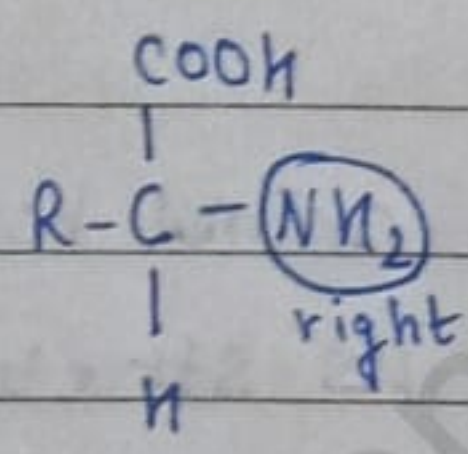 COOH
R-C-NH2
right
H